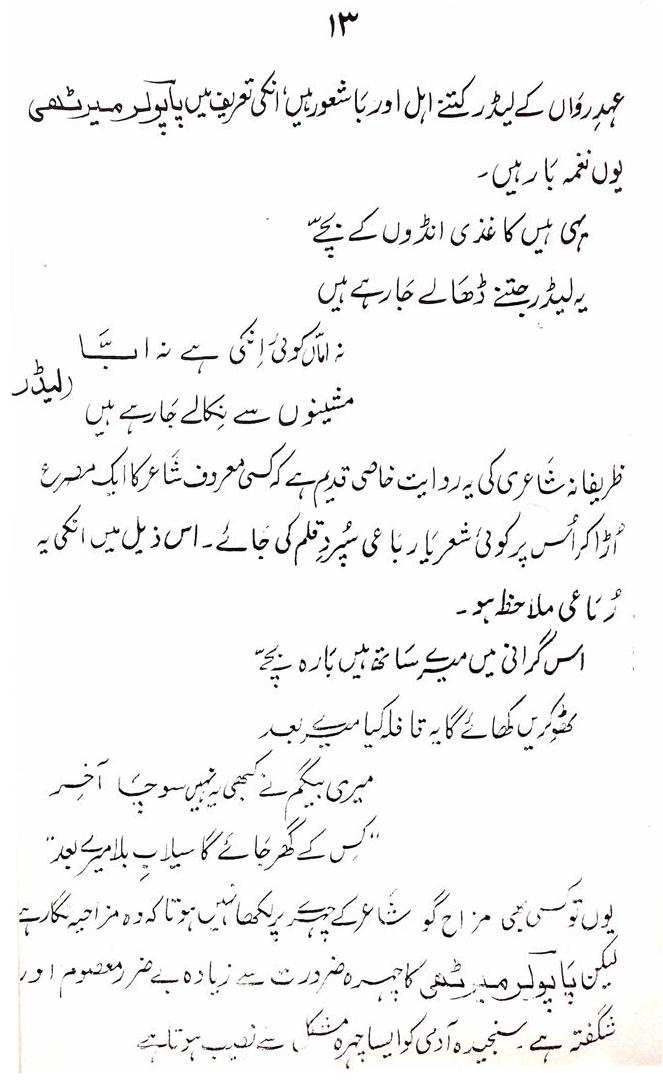 ۱۳
عہدِ رواں کے لیڈر کتنے اہل اور باشعور ہیں، انکی تعریف میں پاپولر میرٹھی
یوں نغمہ بار ہیں۔
یہی ہیں کاغذی انڈوں کے بچّے
یہ لیڈر جتنے ڈھالے جا رہے ہیں
نہ امّاں کوئی اِنکی ہے نہ ابّا
مشینوں سے نِکالے جا رہے ہیں (لیڈر
ظریفانہ شاعری کی یہ روایت خاصی قدیم ہے کہ کسی معروف شاعر کا ایک مصرع
اُڑا کر اُس پر کوئی شعر یا رباعی سُپردِ قلم کی جائے۔ اس ذیل میں انکی یہ
رُباعی ملاحظہ ہو۔
اس گرانی میں میرے ساتھ ہیں بارہ بچّے
ٹھوکریں کھائے گا یہ قافلہ کیا میرے بعد
میری بیگم نے کبھی یہ نہیں سوچا آخر
"کِس کے گھر جائے گا سیلابِ بلا میرے بعد"
یوں تو کسی بھی مزاح گو شاعر کے چہرے پر لکھا نہیں ہوتا کہ وہ مزاحیہ نگار ہے
لیکن پاپولر میرٹھی کا چہرہ ضرورت سے زیادہ بے ضرر معصوم اور
شگفتہ ہے۔ سنجیدہ آدمی کو ایسا چہرہ مشکل سے نصیب ہوتا ہے